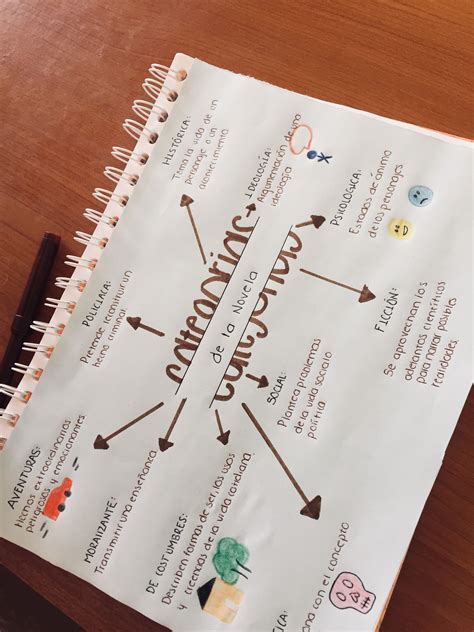 Categorías
de la Novela
HISTÓRICA:
Toma la vida de un
personaje o un
acontecimiento.
IDEOLOGÍA:
Argumentación de una
ideología
PSICOLOGICA:
Estados de ánimo
de los personajes.
FICCIÓN:
Se aprovechan los
adelantos científicos
para narrar posibles
realidades.
SOCIAL:
Plantea problemas
de la vida social o
política.
POLICIACA:
Pretende reconstruir un
hecho criminal.
AVENTURAS:
Hechos extraordinarios
peligrosos y emocionantes.
MORALIZANTE:
Transmitir una enseñanza.
DE COSTUMBRES:
Describen formas de ser, los usos
y creencias de la vida cotidiana.
ICA:
ona con el concepto